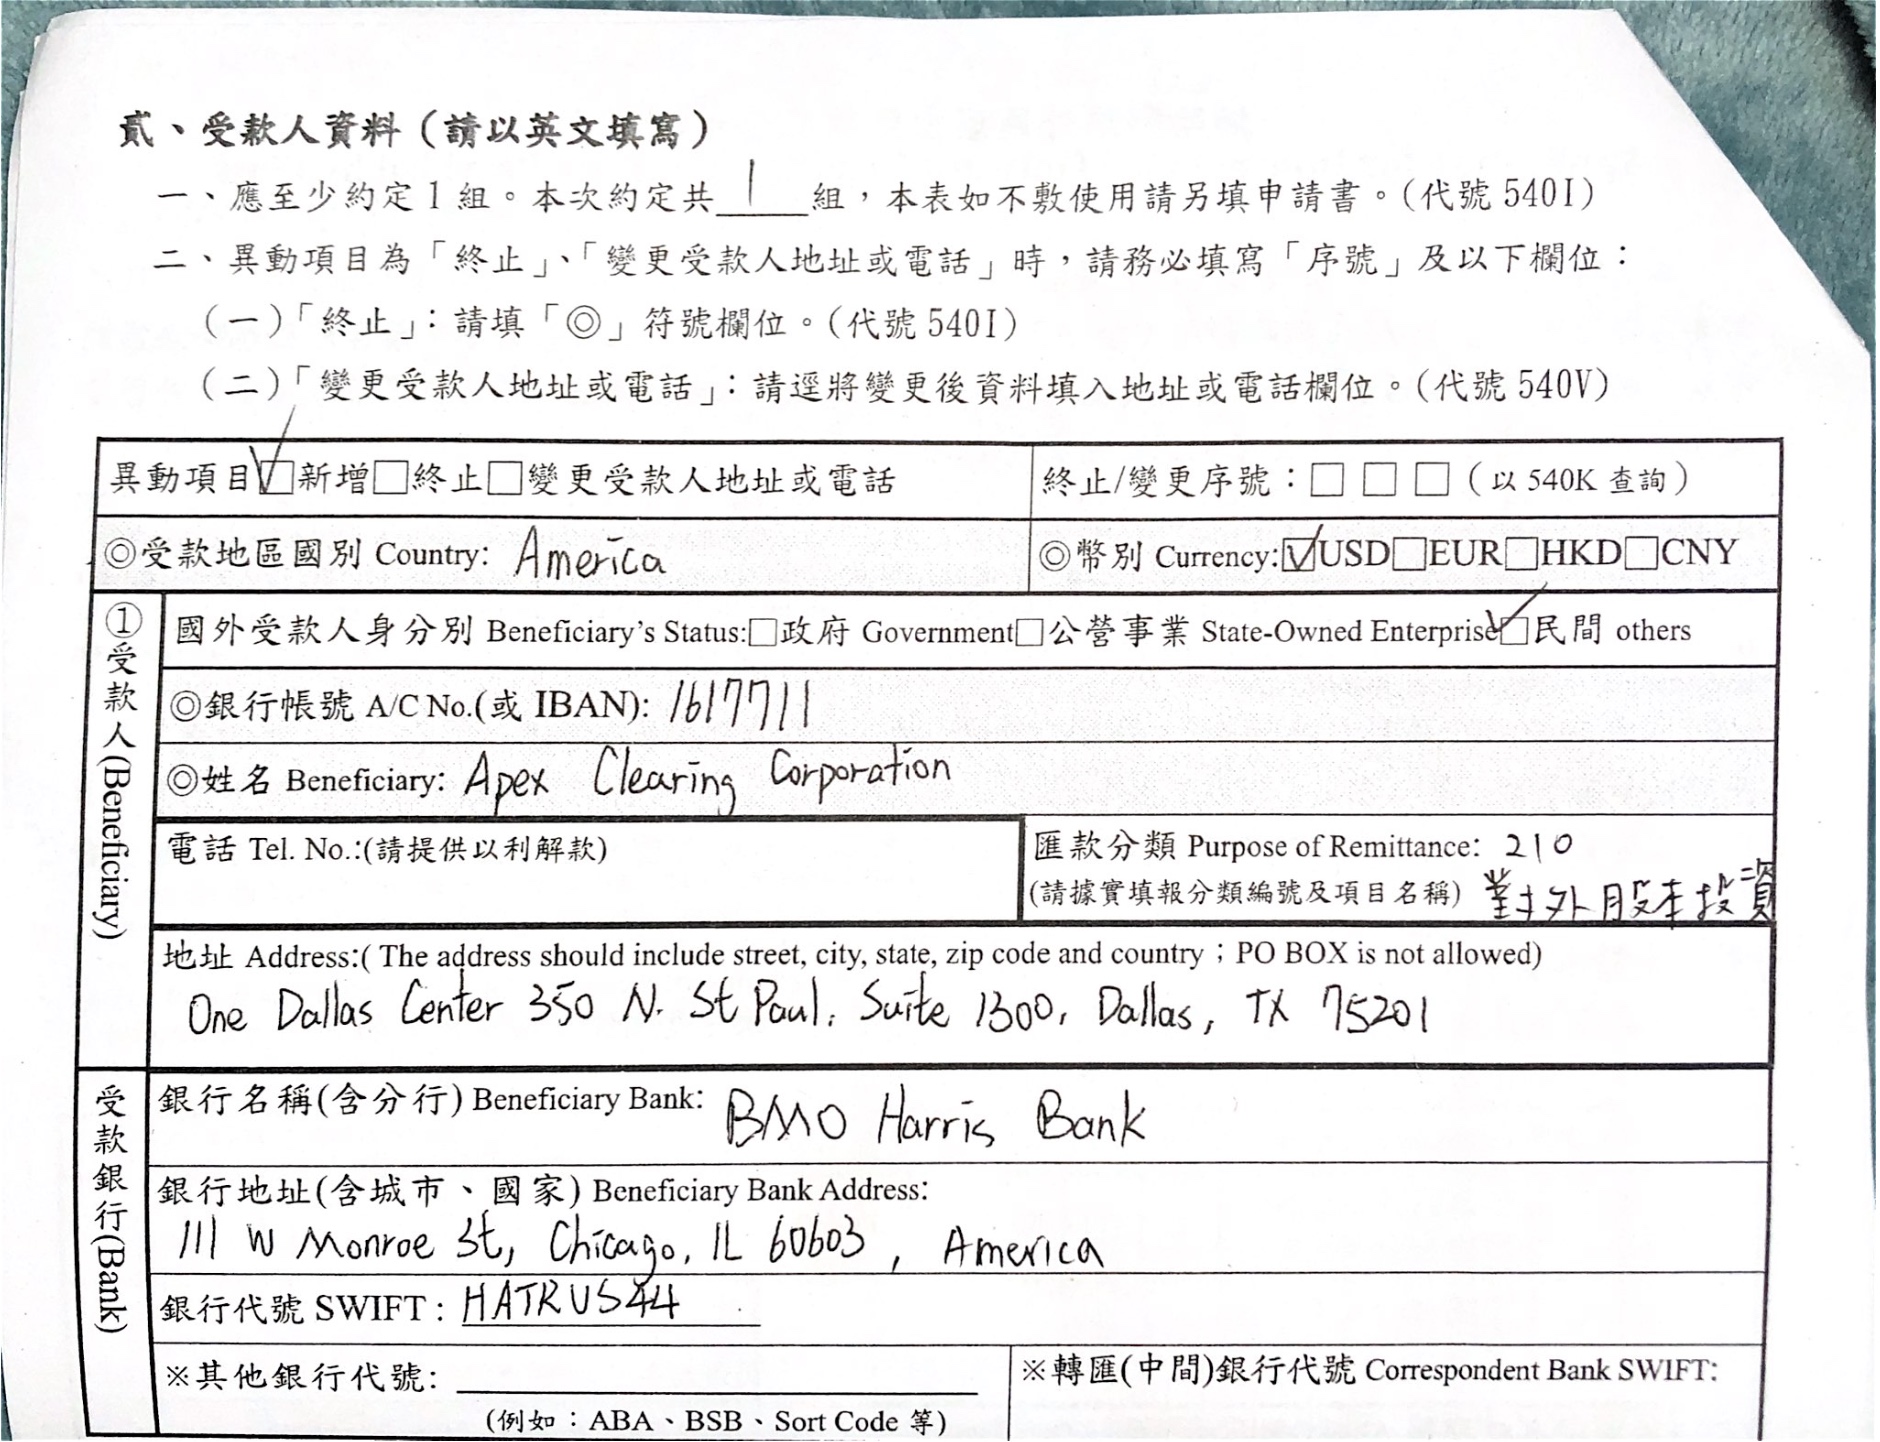 貳、受款人資料(請以英文填寫)
一、應至少約定1組。本次約定共 1 組，本表如不敷使用請另填申請書。(代號540I)
二、異動項目為「終止」、「變更受款人地址或電話」時，請務必填寫「序號」及以下欄位：
(一)「終止」：請填「◎」符號欄位。(代號540I)
(二)「變更受款人地址或電話」：請逕將變更後資料填入地址或電話欄位。(代號540V)
異動項目☑新增□終止□變更受款人地址或電話
終止/變更序號：□ □ □ (以 540K 查詢)
◎受款地區國別 Country: America
◎幣別 Currency:☑USD□EUR□HKD□CNY
①受款人(Beneficiary)
國外受款人身分別 Beneficiary's Status:□政府 Government□公營事業 State-Owned Enterprise☑民間 others
◎銀行帳號 A/C No.(或 IBAN): 1617711
◎姓名 Beneficiary: Apex Clearing Corporation
電話 Tel. No.:(請提供以利解款)
匯款分類 Purpose of Remittance: 210
(請據實填報分類編號及項目名稱) 對外股本投資
地址 Address:( The address should include street, city, state, zip code and country；PO BOX is not allowed)
One Dallas Center 350 N. St Paul, Suite 1300, Dallas, TX 75201
受款銀行(Bank)
銀行名稱(含分行) Beneficiary Bank: BMO Harris Bank
銀行地址(含城市、國家) Beneficiary Bank Address:
111 W Monroe St, Chicago, IL 60603, America
銀行代號 SWIFT: HATRUS44
※其他銀行代號:
(例如：ABA、BSB、Sort Code 等)
※轉匯(中間)銀行代號 Correspondent Bank SWIFT: